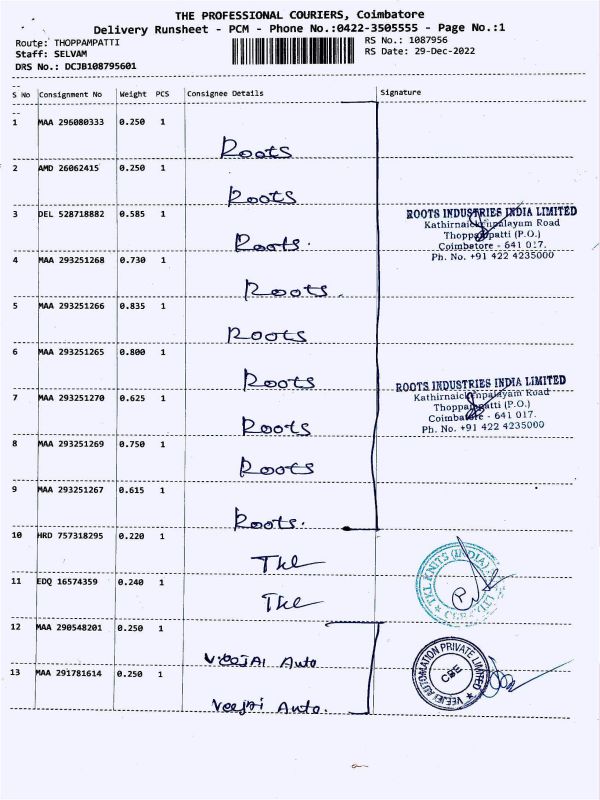 THE PROFESSIONAL COURIERS, Coimbatore
Delivery Runsheet - PCM - Phone No.:0422-3505555 - Page No.:1
Route: THOPPAMPATTI
RS No.: 1087956
Staff: SELVAM
RS Date: 29-Dec-2022
DRS No.: DCJB108795601
S No Consignment No Weight PCS Consignee Details Signature
1 MAA 296080333 0.250 1
Roots
2 AMD 26062415 0.250 1
Roots
3 DEL 528718882 0.585 1
Roots.
ROOTS INDUSTRIES INDIA LIMITED
Kathirnaickenpalayam Road
Thoppampatti (P.O.)
Coimbatore - 641 017.
Ph. No. +91 422 4235000
4 MAA 293251268 0.730 1
Roots.
5 MAA 293251266 0.835 1
Roots
6 MAA 293251265 0.800 1
Roots
ROOTS INDUSTRIES INDIA LIMITED
Kathirnaickenpalayam Road
Thoppampatti (P.O.)
Coimbatore - 641 017.
Ph. No. +91 422 4235000
7 MAA 293251270 0.625 1
Roots
8 MAA 293251269 0.750 1
Roots
9 MAA 293251267 0.615 1
Roots.
10 HRD 757318295 0.220 1
Tkl
11 EDQ 16574359 0.240 1
Tkl
TKL KNITS (INDIA)
12 MAA 290548201 0.250 1
Veejai Auto
13 MAA 291781614 0.250 1
Veejai Auto.
VEEJEY AUTOMATION PRIVATE LIMITED
CBE